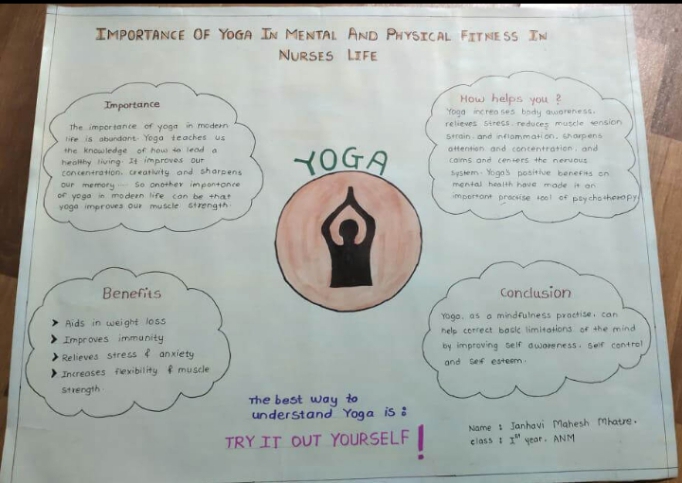 IMPORTANCE OF YOGA IN MENTAL AND PHYSICAL FITNESS IN
NURSES LIFE
Importance
The importance of yoga in modern
life is abundant. Yoga teaches us
the knowledge of how to lead a
healthy living. It improves our
concentration, creativity and sharpens
our memory --- So another importance
of yoga in modern life can be that
yoga improves our muscle strength.
How helps you ?
Yoga increases body awareness,
relieves stress, reduces muscle tension
strain, and inflammation, sharpens
attention and concentration, and
calms and centers the nervous
system. Yoga's positive benefits on
mental health have made it an
important practise tool of psychotherapy
YOGA
Benefits
➤ Aids in weight loss
➤ Improves immunity
➤ Relieves stress & anxiety
➤ Increases flexibility & muscle
strength
Conclusion
Yoga, as a mindfulness practise, can
help correct basic limitations of the mind
by improving self awareness, self control
and sef esteem.
The best way to
understand Yoga is :
TRY IT OUT YOURSELF !
Name : Janhavi Mahesh Mhatre.
class : 1st year. ANM